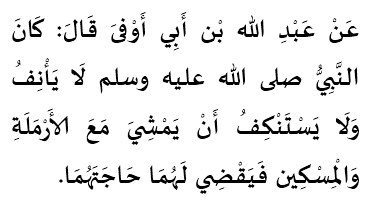 عَنْ عَبْدِ الله بْن أَبِي أَوْفىَ قَالَ: كَانَ
النَّبِيُّ صلى الله عليه وسلم لَا يَأْنِفُ
وَلَا يَسْتَنْكِفُ أَنْ يَمْشِيَ مَعَ الأَرْمَلَةِ
وَالْمِسْكِين فَيَقْضِي لَهُمَا حَاجَتَهُمَا.